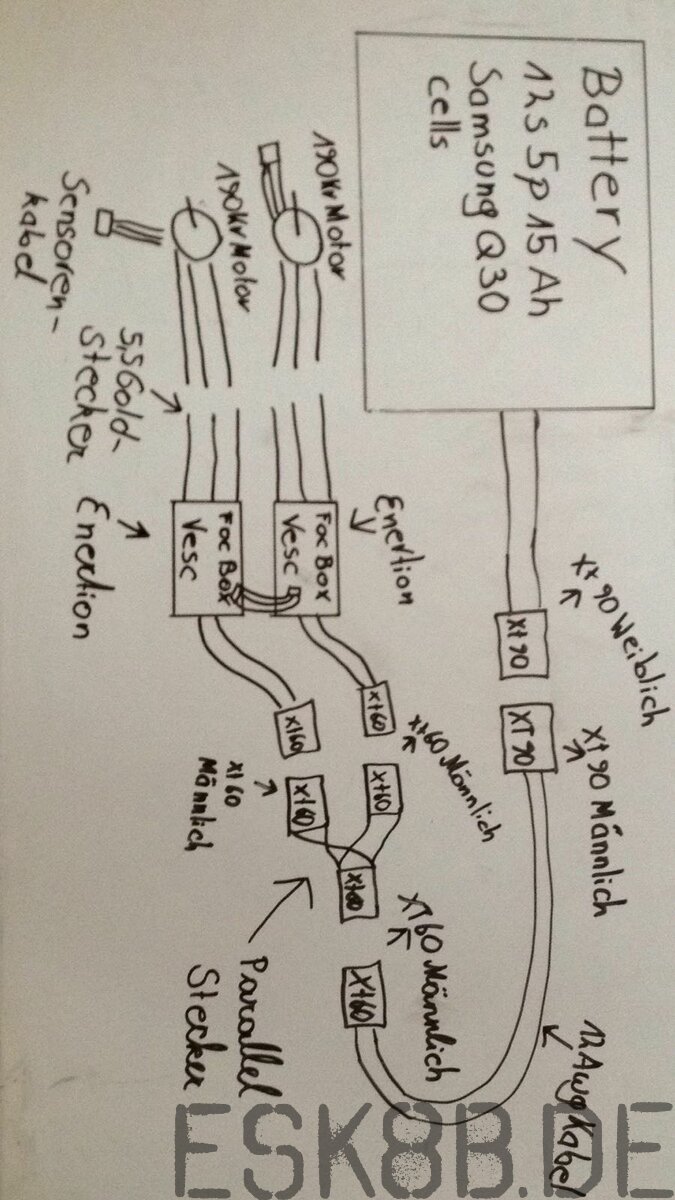 Battery
12s 5p 15 Ah
Samsung Q30
cells
190Kv Motor
190Kv Motor
Sensoren-
kabel
5,5 Gold-
Stecker
Enertion
Enertion
Foc Box
Vesc
Foc Box
Vesc
Xt 90 Weiblich
Xt 90
XT 90
Xt 90 Männlich
12 Awg Kabel
xt60
xt60 Männlich
xt60
xt60
Xt 60
Männlich
xt60
xt60
XT60 Männlich
Xt60
Parallel
Stecker
ESK8B.DE